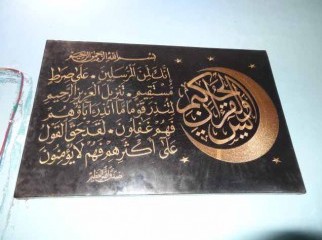 بسم الله الرحمن الرحيم
يس والقرآن الحكيم
إنك لمن المرسلين • على صراط
مستقيم • تنزيل العزيز الرحيم
لتنذر قوما ما أنذر آباؤهم
فهم غفلون • لقد حق القول
على أكثرهم فهم لا يؤمنون
صدق الله العظيم